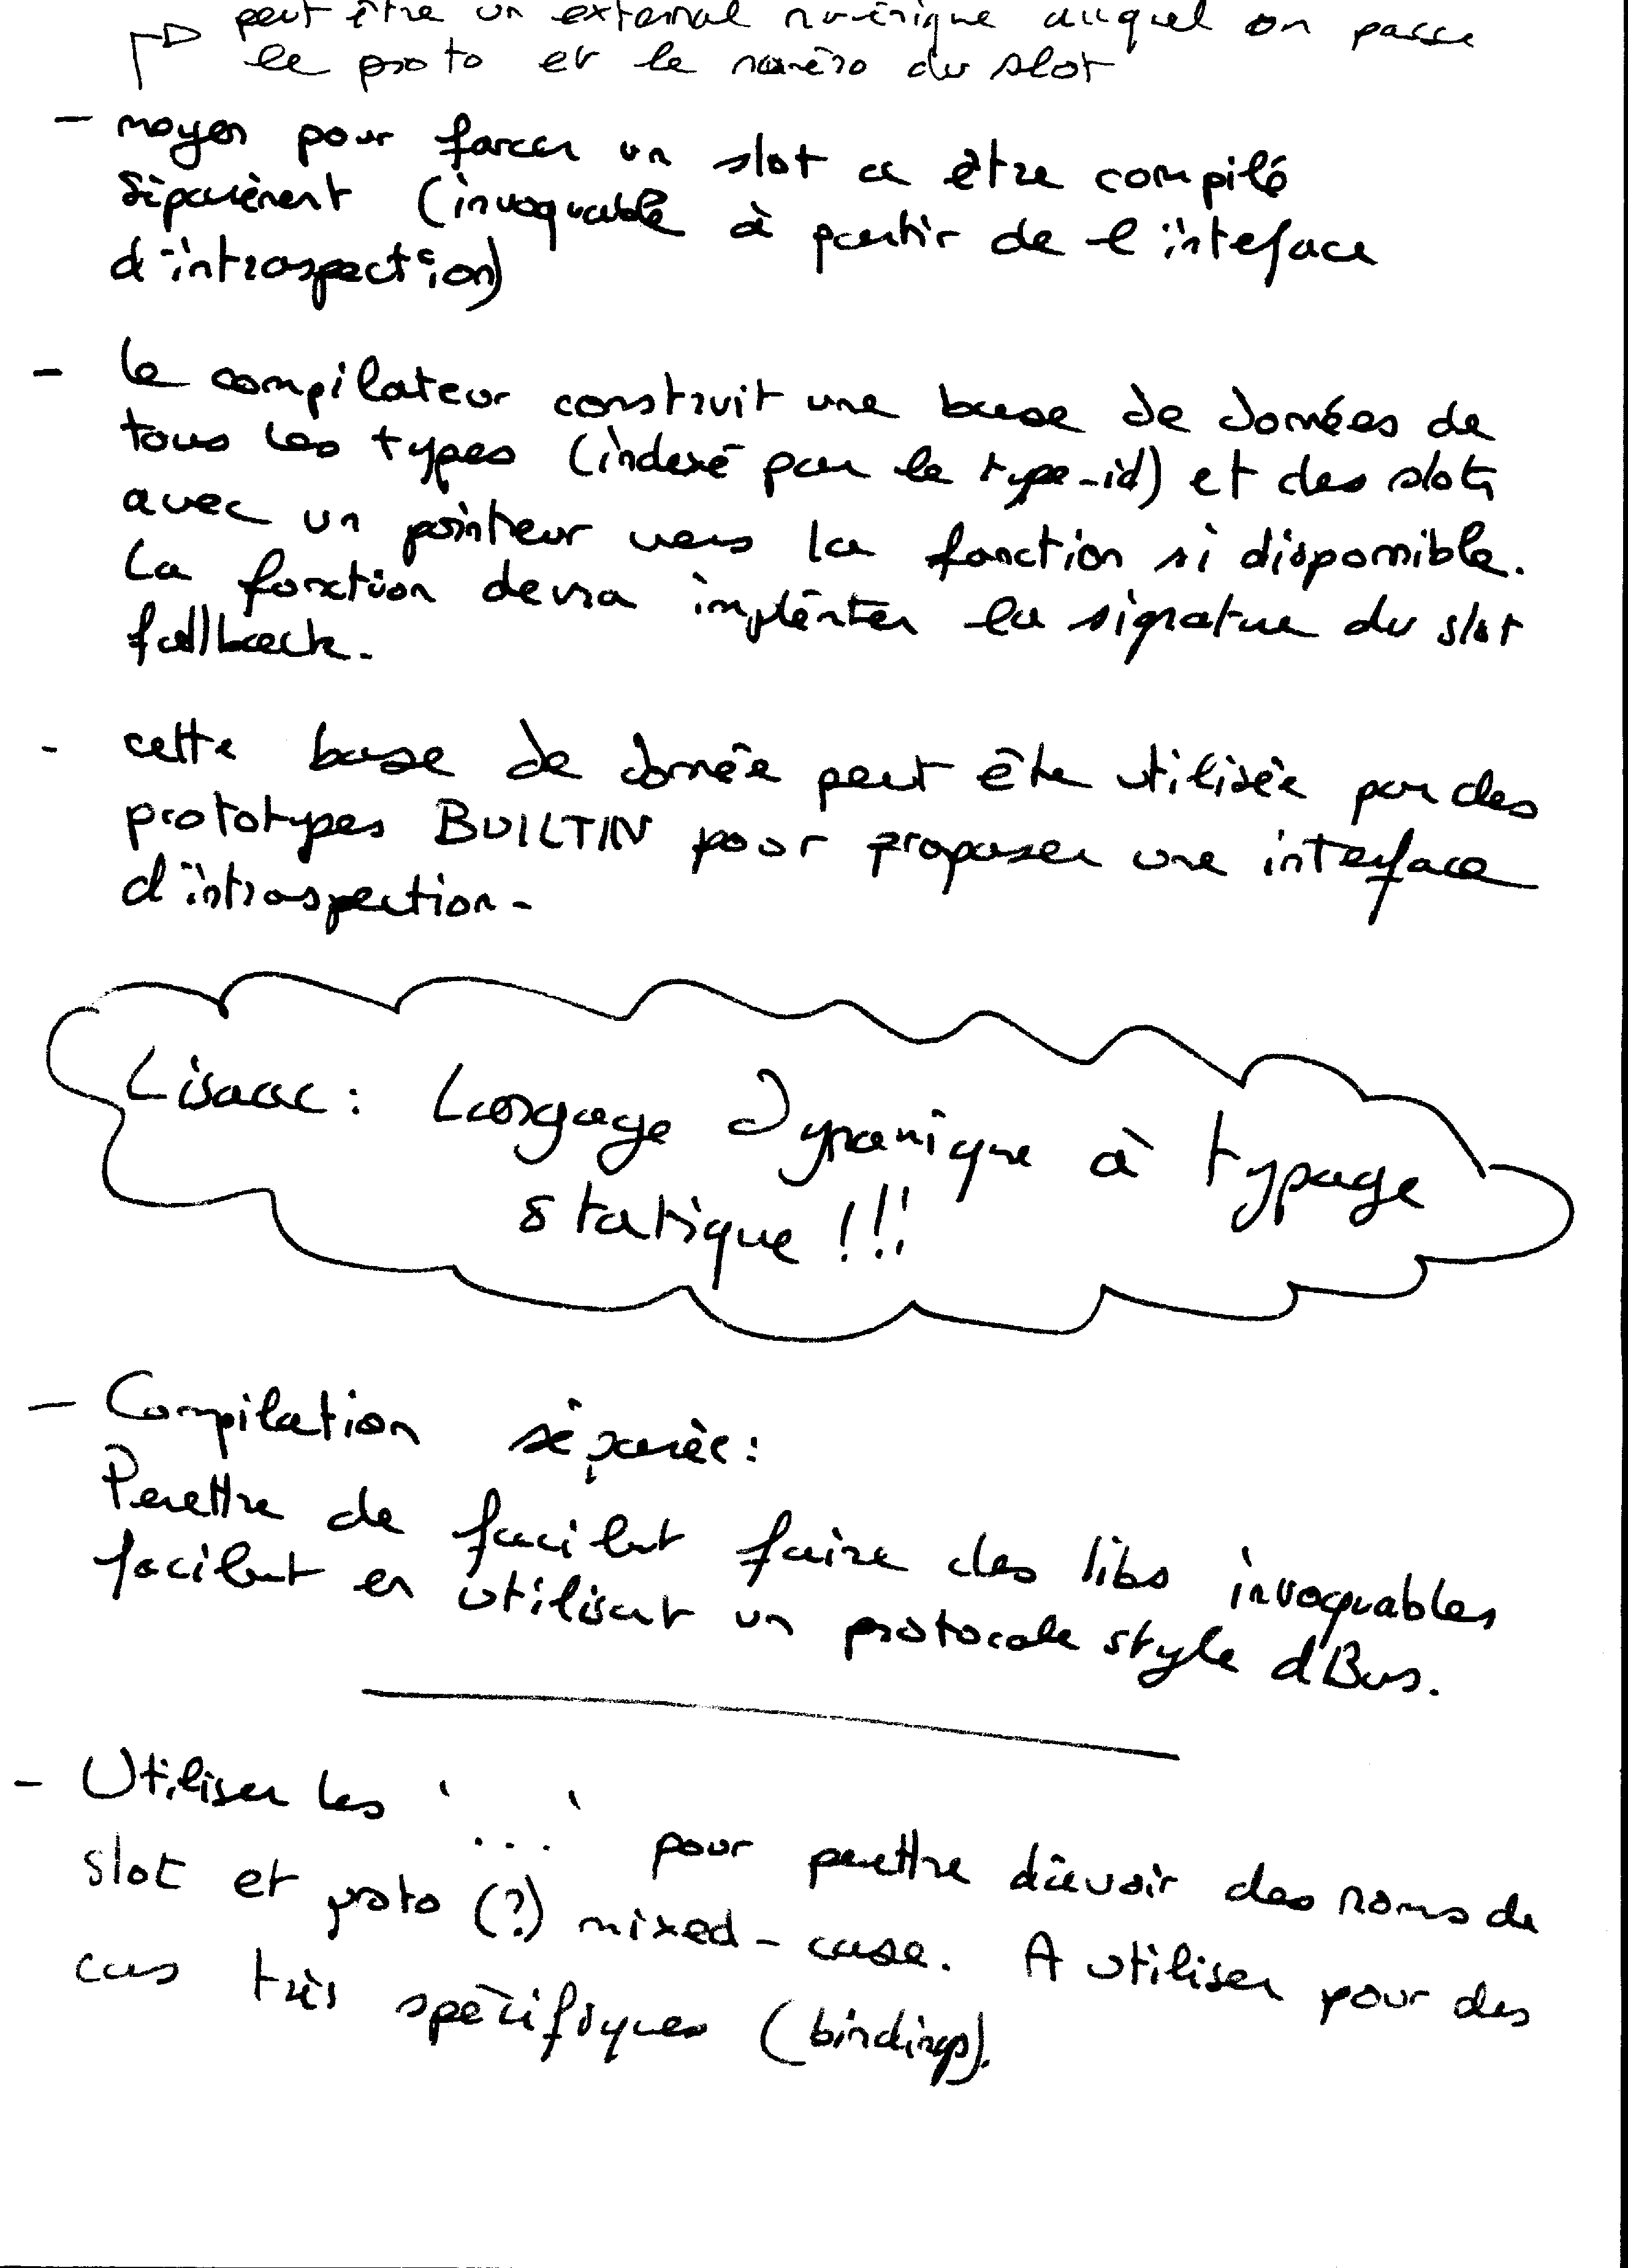 peut être un external numérique auquel on passe
le proto et le numéro du slot
- moyen pour forcer un slot a être compilé
séparément (invoquable à partir de l'inteface
d'introspection)
- le compilateur construit une base de données de
tous les types (indexé par le type-id) et des slots
avec un pointeur vers la fonction si disponible.
La fonction devra implénter la signature du slot
fallback.
- cette base de donnée peut être utilisée par des
prototypes BUILTIN pour proposer une interface
d'introspection.
Lisaac : Langage Dynamique à typage
statique !!!
- Compilation séparée :
Permettre de facilmt faire des libs invoquables
facilmt en utilisant un protocole style dBus.
- Utiliser les ` ... ` pour permettre d'avoir des noms de
slot et proto (?) mixed-case. A utiliser pour des
cas très spécifiques (bindings).